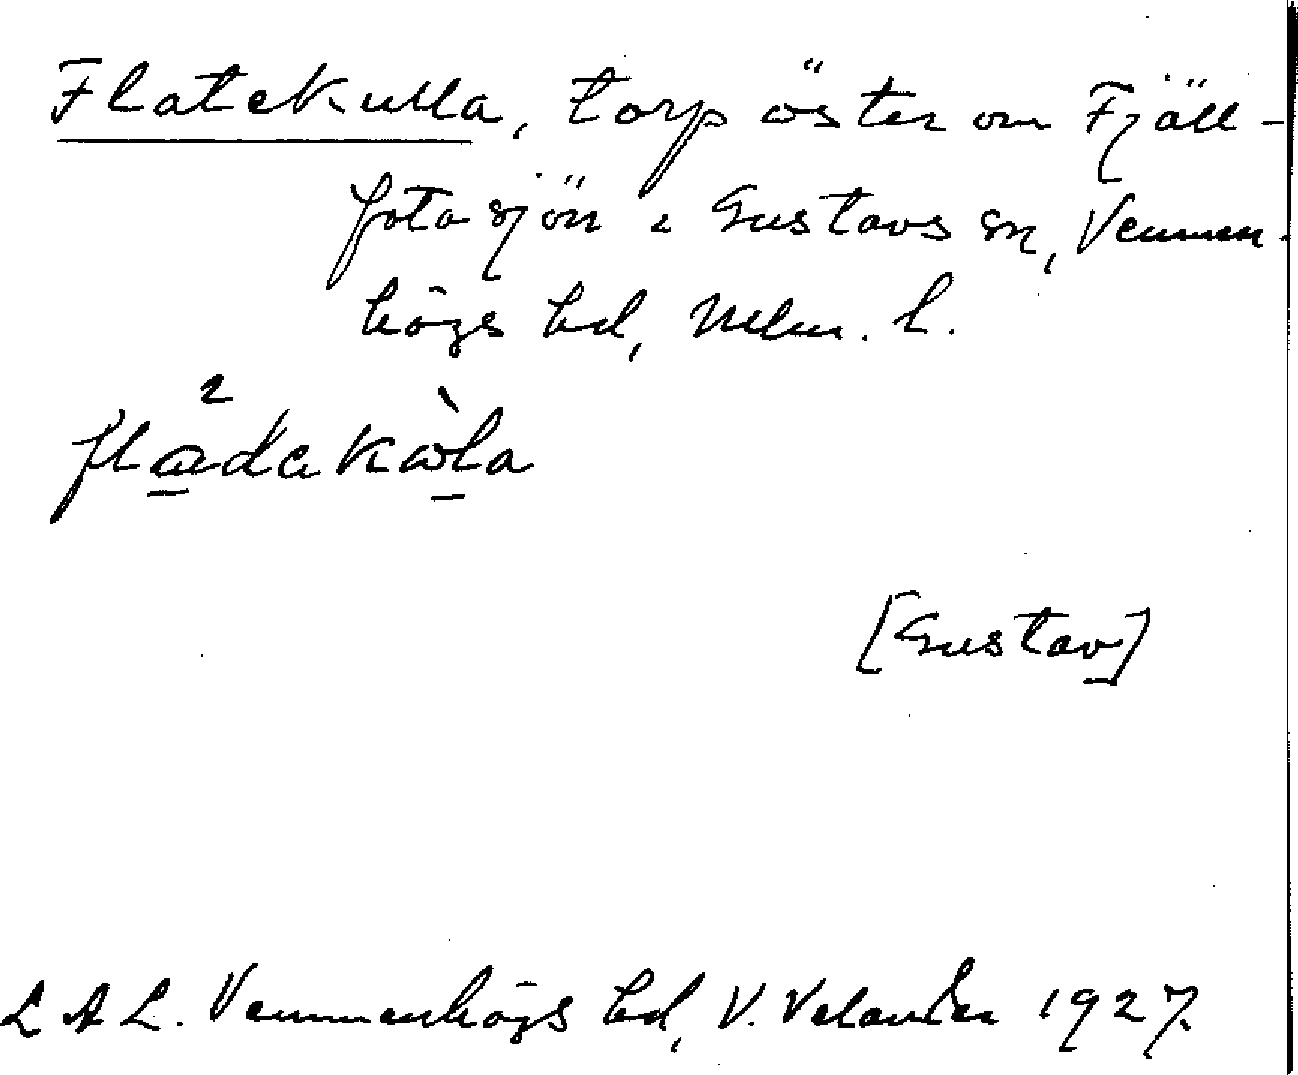 Flatekulla, torp öster om Fjäll-
fotasjön i Gustavs sn, Vemmen-
högs hd, Mlm. l.
[Gustav]
L A L. Vemmenhögs hd, V. Velander 1927.